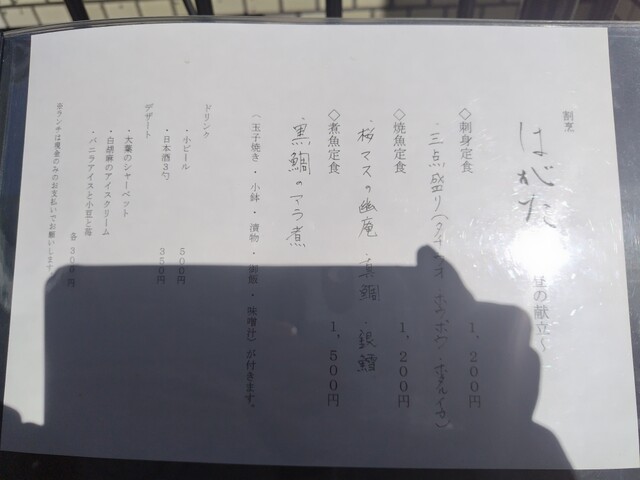 割烹
はがた
昼の献立〜
◇刺身定食 1,200円
・三点盛り(タチウオ・ホウボウ・ホタルイカ)
◇焼魚定食 1,200円
・桜マスの幽庵 ・真鯛 ・銀鱈
◇煮魚定食 1,500円
・黒鯛のアラ煮
(玉子焼き・小鉢・漬物・御飯・味噌汁)が付きます。
ドリンク
・小ビール 500円
・日本酒3勺 350円
デザート
・大葉のシャーベット
・白胡麻のアイスクリーム
・バニラアイスと小豆と苺 各300円
※ランチは現金のみのお支払いでお願いします。